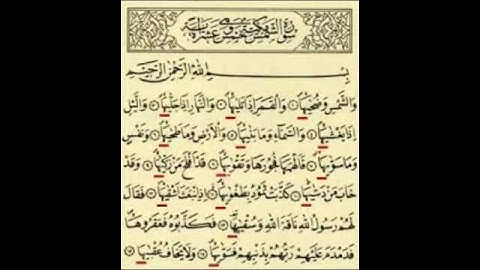 سورة الشمس مكية وهي خمس عشرة آية
بِسْمِ اللّٰهِ الرَّحْمٰنِ الرَّحِيمِ
وَالشَّمْسِ وَضُحٰيهَا ۝ وَالْقَمَرِ اِذَا تَلٰيهَا ۝ وَالنَّهَارِ اِذَا جَلّٰيهَا ۝ وَالَّيْلِ
اِذَا يَغْشٰيهَا ۝ وَالسَّمَآءِ وَمَا بَنٰيهَا ۝ وَالْاَرْضِ وَمَا طَحٰيهَا ۝ وَنَفْسٍ
وَمَا سَوّٰيهَا ۝ فَاَلْهَمَهَا فُجُورَهَا وَتَقْوٰيهَا ۝ قَدْ اَفْلَحَ مَنْ زَكّٰيهَا ۝ وَقَدْ
خَابَ مَنْ دَسّٰيهَا ۝ كَذَّبَتْ ثَمُودُ بِطَغْوٰيهَا ۝ اِذِ انْبَعَثَ اَشْقٰيهَا ۝ فَقَالَ
لَهُمْ رَسُولُ اللّٰهِ نَاقَةَ اللّٰهِ وَسُقْيٰيهَا ۝ فَكَذَّبُوهُ فَعَقَرُوهَا
فَدَمْدَمَ عَلَيْهِمْ رَبُّهُمْ بِذَنْبِهِمْ فَسَوّٰيهَا ۝ وَلَا يَخَافُ عُقْبٰيهَا ۝